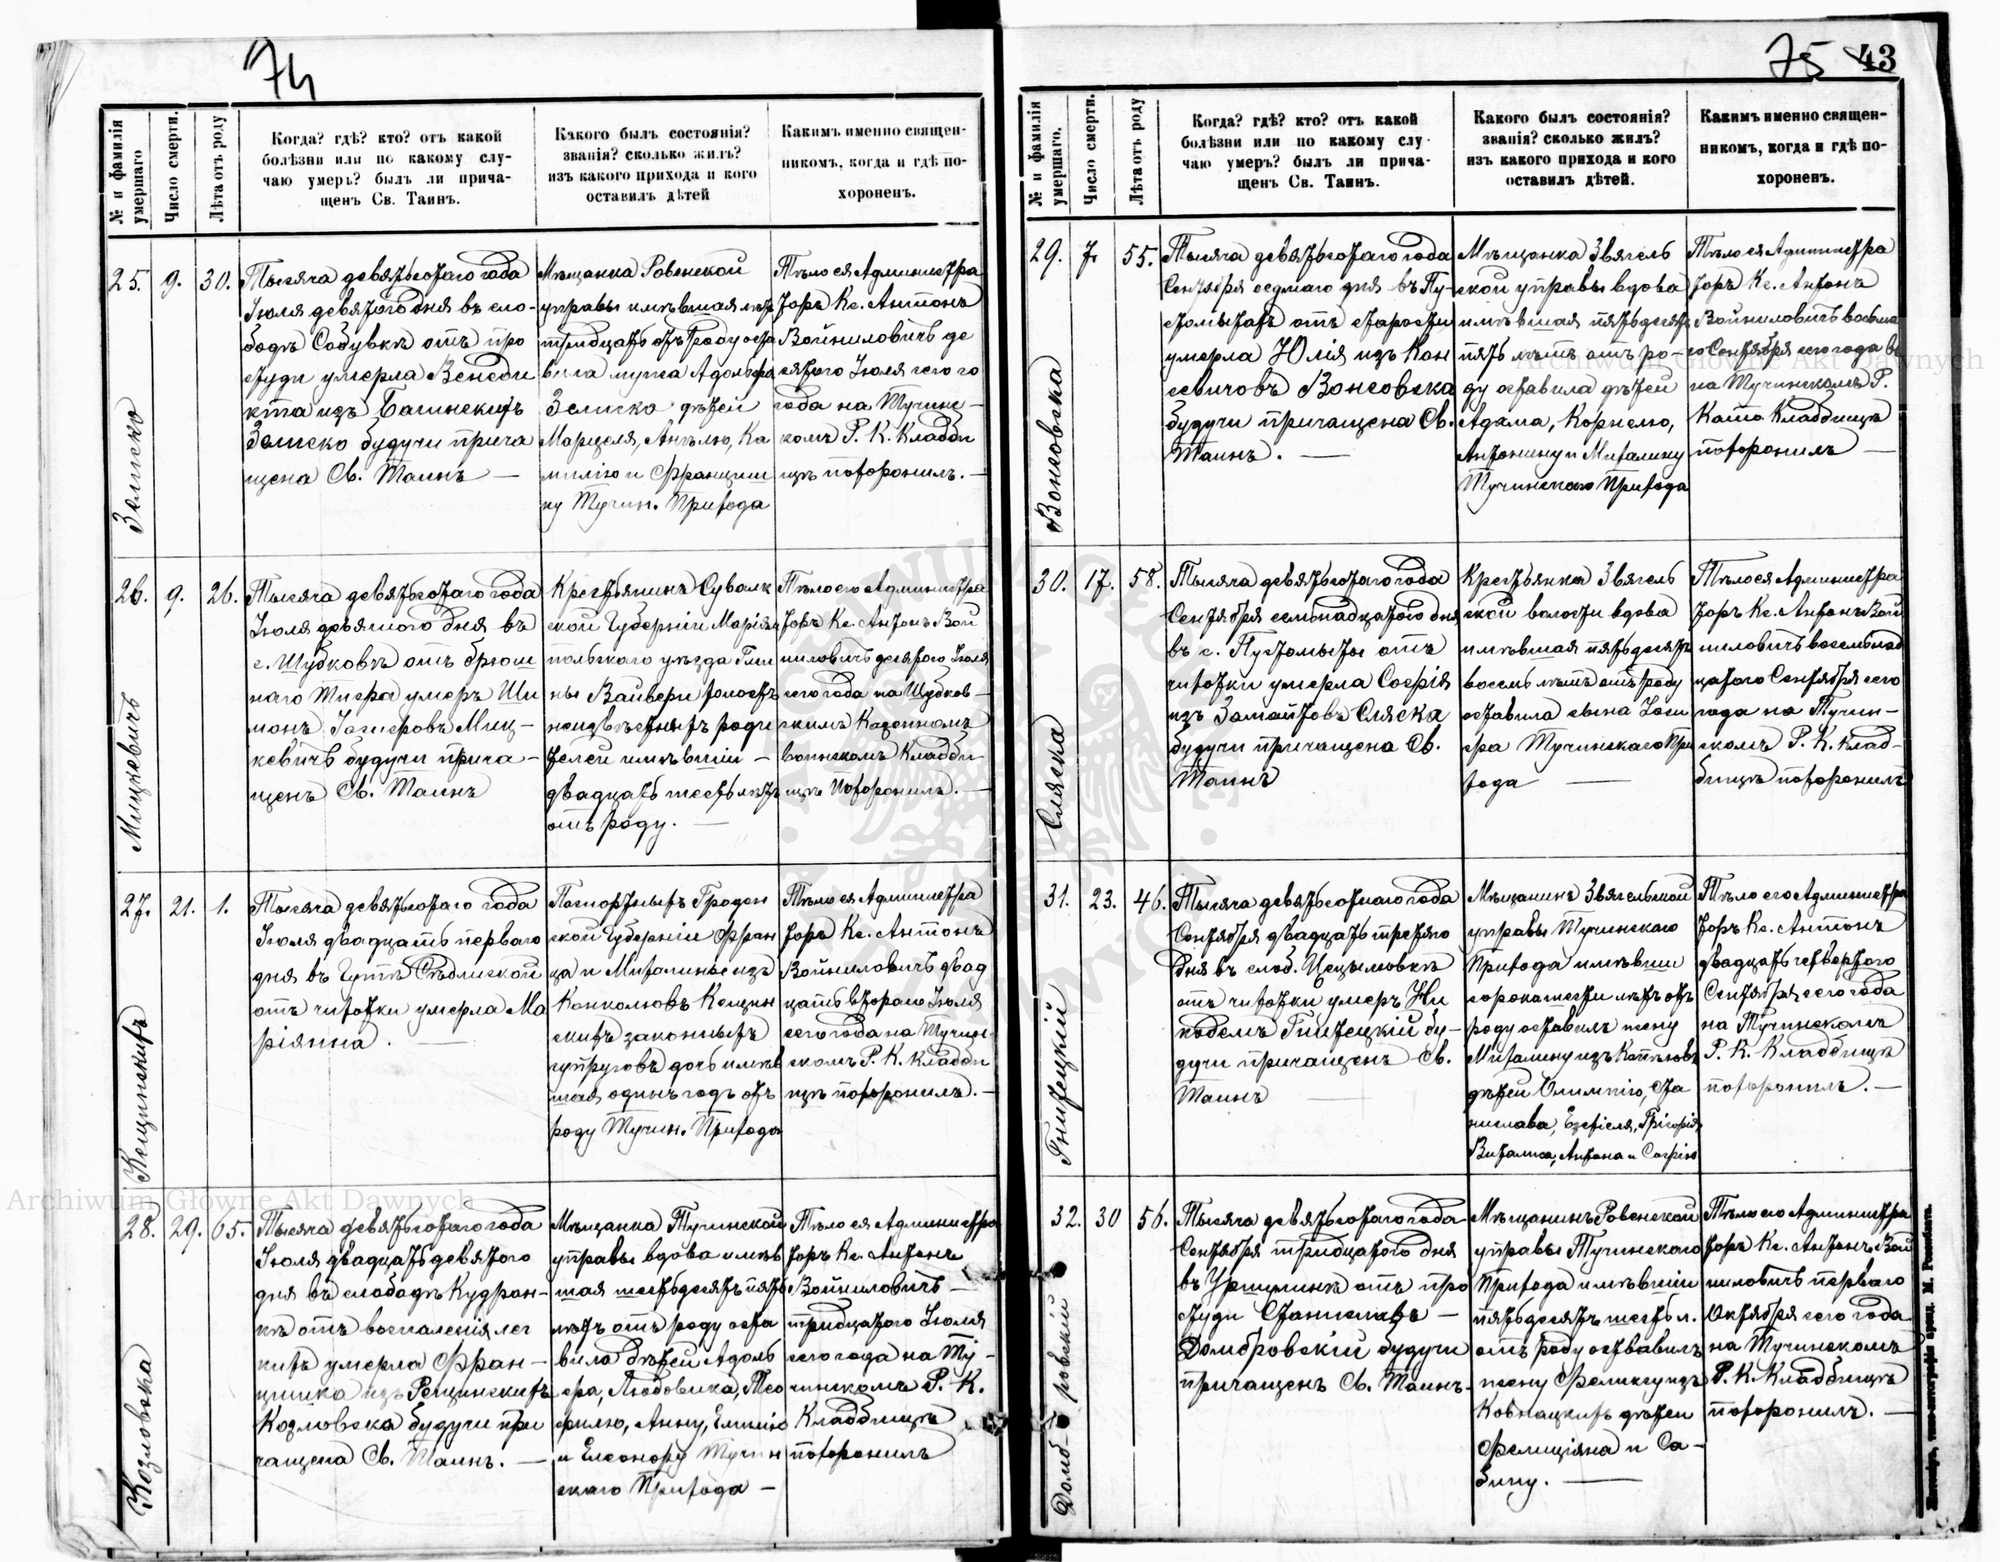 74
№ и фамилія умершаго
Число смерти.
Лѣта отъ роду
Когда? гдѣ? кто? отъ какой
болѣзни или по какому слу-
чаю умеръ? былъ ли прича-
щенъ Св. Таинъ.
Какого былъ состоянія?
званія? сколько жилъ?
изъ какого прихода и кого
оставилъ дѣтей
Какимъ именно священ-
никомъ, когда и гдѣ по-
хороненъ.
25.
Зелиско
9.
30.
Тысяча девятьсотаго года
Іюля девятого дня въ сло-
бодѣ Собувкѣ отъ про
студи умерла Венеди
кта изъ Багинскихъ
Зелиско будучи прича
щена Св. Таинъ —
Мѣщанка Ровенской
управы имѣвшая лѣтъ
тридцать отъ роду оста
вила мужа Адольфа
Зелиско дѣтей
Марцеля, Анѣлю, Ка
милію и Францишк
ку Тучин. Прихода
Тѣло ея Администра
торъ Кс. Антонъ
Войниловичъ де
сятого Іюля сего го
года на Тучинс-
комъ Р. К. Кладби
щѣ похоронилъ. —
26.
Мицкевичъ
9.
26.
Тысяча девятьсотаго года
Іюля девятого дня въ
с. Шубковѣ отъ брюш
наго Тифа умеръ Ши
монъ Миц-
кевичъ будучи прича-
щенъ Св. Таинъ
Крестьянинъ Сувалк
ской Губерніи Маріям
польскаго уѣзда Гми
ны
неизвѣстныхъ роди
телей имѣвшій —
двадцать шесть лѣтъ
отъ роду. —
Тѣло его Администра
торъ Кс. Антонъ Вой
ниловичъ десятого Іюля
сего года на Шубков-
скимъ Казенномъ
воинскомъ Кладби
щѣ похоронилъ. —
27.
Кещинскихъ
21.
1.
Тысяча девятьсотаго года
Іюля двадцать перваго
дня въ Гутѣ
отъ чихотки умерла Ма
ріянна. —
Гроден
ской Губерніи Фран
ца и Михалины изъ
Конколювъ Кещин
скихъ законныхъ
супруговъ дочь имѣв
шая одинъ годъ отъ
роду Тучин. Прихода
Тѣло ея Администра
торъ Кс. Антонъ
Войниловичъ двад
цать втораго Іюля
сего года на Тучин-
скомъ Р. К. Кладби
щѣ похоронилъ. —
28.
Козловска
29.
65.
Тысяча девятьсотаго года
Іюля двадцать девятого
дня въ слободѣ Кудран-
кѣ отъ воспаленія лег
кихъ умерла Фран-
цишка изъ Рещинскихъ
Козловска будучи при
чащена Св. Таинъ. —
Мѣщанка Тучинской
управы вдова имѣв
шая шестьдесятъ пять
лѣтъ отъ роду оста
вила дѣтей Адоль
фа, Людовика, Тео
филю, Анну, Емилію
и Елеонору Тучин
скаго Прихода —
Тѣло ея Администра
торъ Кс. Антонъ
Войниловичъ —
тридцатого Іюля
сего года на Ту-
чинскомъ Р. К.
Кладбищѣ
похоронилъ
75 43
№ и фамилія умершаго.
Число смерти.
Лѣта отъ роду
Когда? гдѣ? кто? отъ какой
болѣзни или по какому слу-
чаю умеръ? былъ ли прича-
щенъ Св. Таинъ.
Какого былъ состоянія?
званія? сколько жилъ?
изъ какого прихода и кого
оставилъ дѣтей.
Какимъ именно священ-
никомъ, когда и гдѣ по-
хороненъ.
29.
Вонсовска
7.
55.
Тысяча девятьсотаго года
Сентября седмаго дня въ Пу-
стомытахъ отъ старости
умерла Юлія изъ Кон
севичовъ Вонсовска
будучи причащена Св.
Таинъ. —
Мѣщанка Звягель
ской управы вдова
имѣвшая пятьдесятъ
пять лѣтъ отъ ро-
ду оставила дѣтей
Адама, Корнелю,
Антонину и Михалину
Тучинскаго Прихода
Тѣло ея Администра
торъ Кс. Антонъ
Войниловичъ восьма
го Сентября сего года
на Тучинскомъ Р.
Като. Кладбищѣ
похоронилъ —
30.
Сляска
17.
58.
Тысяча девятьсотаго года
Сентября семьнадцатого дня
въ с. Пустомыты отъ
чихотки умерла Софія
изъ Замайтовъ Сляска
будучи причащена Св.
Таинъ
Крестьянка Звягель
ской волости вдова
имѣвшая пятьдесятъ
восемь лѣтъ отъ роду
оставила сына Іози
фа Тучинскаго При
хода —
Тѣло ея Администра
торъ Кс. Антонъ Вой
ниловичъ восемьнад
цатого Сентября сего
года на Тучин-
скомъ Р. К. Клад-
бищѣ похоронилъ
31.
Гнитецкій
23.
46.
Тысяча девятьсотаго года
Сентября двадцать третяго
дня въ слоб. Цецылювкѣ
отъ чихотки умеръ Ни
кодемъ Гнитецкій бу-
дучи причащенъ Св.
Таинъ —
Мѣщанинъ Звягельской
управы Тучинскаго
Прихода имѣвши
сорокъ шести лѣтъ отъ
роду оставилъ жену
Михалину изъ
дѣтей Олимпію, Ста
нислава, Григорія,
Виталиса, Антона и Софію
Тѣло его Администра
торъ Кс. Антонъ
двадцать четвертого
Сентября сего года
на Тучинскомъ
Р. К. Кладбищѣ
похоронилъ. —
32.
Домб-ровскій
30
56.
Тысяча девятьсотаго года
Сентября тридцатого дня
въ отъ про
студи Станиславъ —
Домбровскій будучи
причащенъ Св. Таинъ.
Мѣщанинъ Ровенской
управы Тучинскаго
Прихода имѣвшій
пятьдесятъ шесть л.
отъ роду оставилъ
жену Феликсу изъ
Ковнацкихъ дѣтей
Фелиціяна и Са-
бину. —
Тѣло его Администра
торъ Кс. Антонъ Вой
ниловичъ перваго
Октября сего года
на Тучинскомъ
Р. К. Кладбищѣ
похоронилъ. —
Житоміръ, типо-литографія аренд. М. Розенблата.
Archiwum Główne Akt Dawnych
Archiwum Główne Akt Dawnych